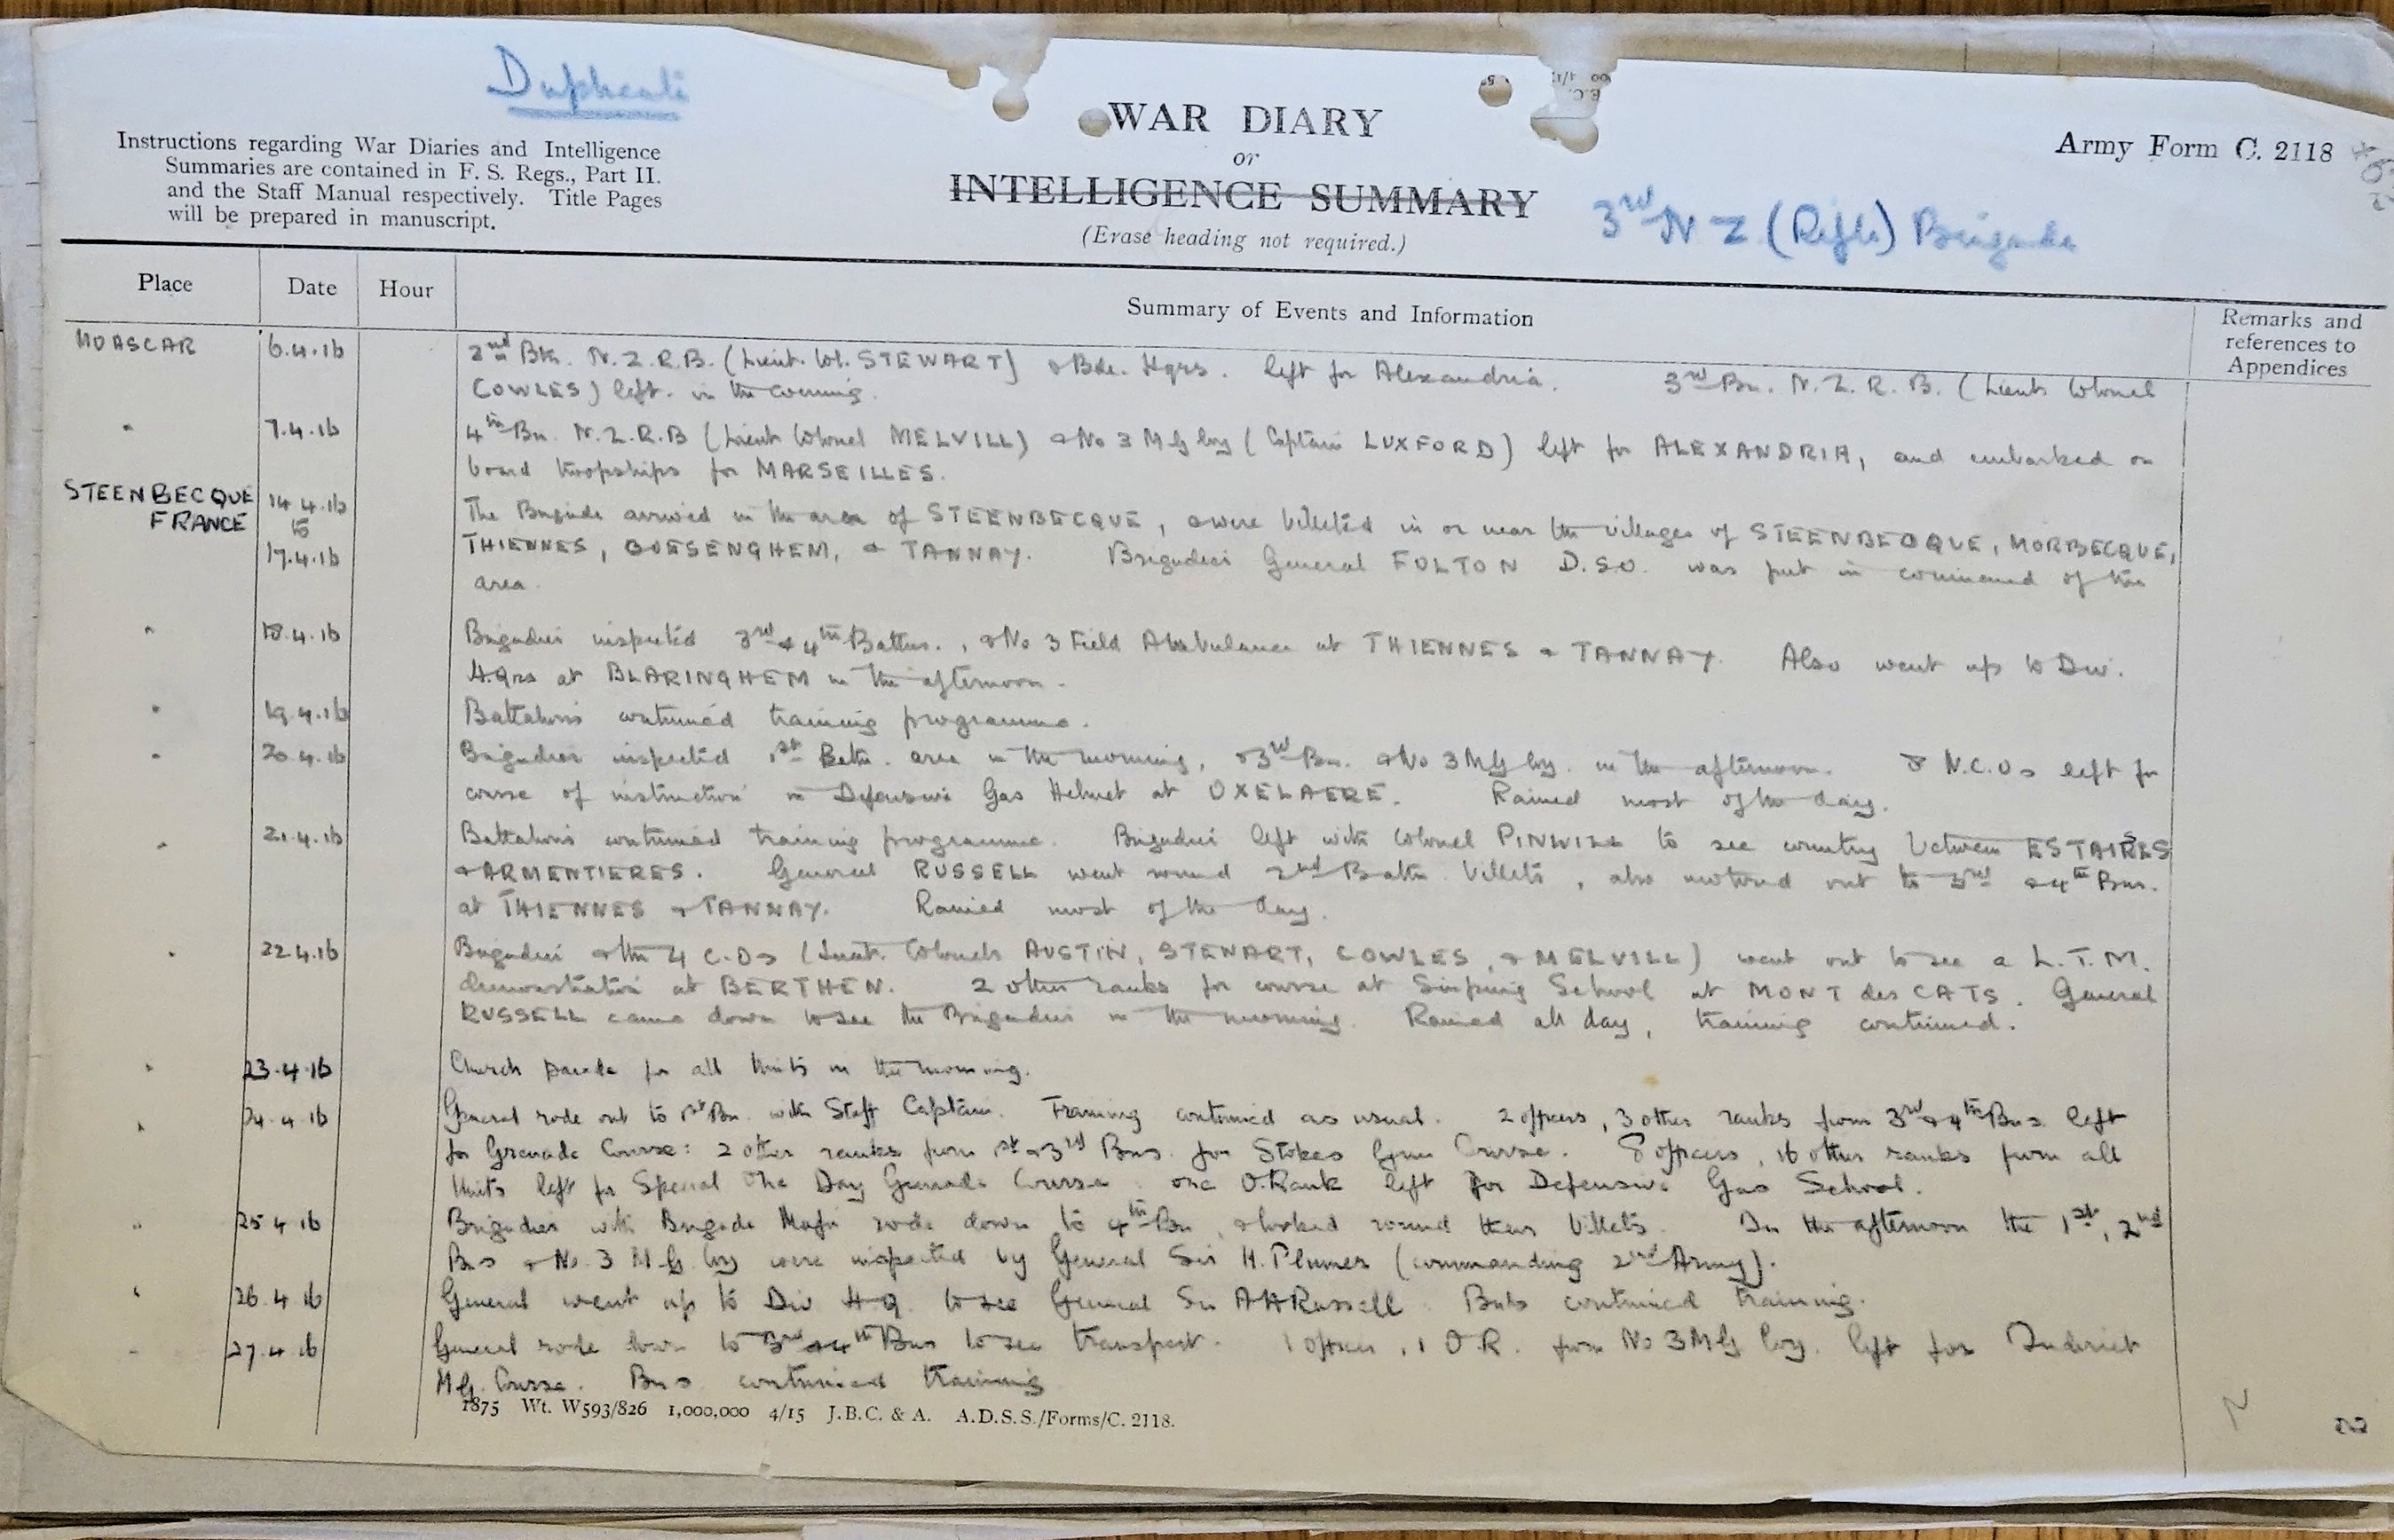 Duplicate
WAR DIARY
or
INTELLIGENCE SUMMARY
(Erase heading not required.)
Army Form C. 2118
3rd N Z (Rifle) Brigade
Instructions regarding War Diaries and Intelligence
Summaries are contained in F. S. Regs., Part II.
and the Staff Manual respectively. Title Pages
will be prepared in manuscript.
Place Date Hour Summary of Events and Information Remarks and
references to
Appendices
MOASCAR 6.4.16 2nd Btn. N.Z.R.B. (Lieut. Col. STEWART) & Bde. Hqrs. left for Alexandria. 3rd Bn. N.Z.R.B. (Lieut Colonel
COWLES) left in the evening.
" 7.4.16 4th Bn. N.Z.R.B (Lieut Colonel MELVILL) & No 3 MG Coy (Captain LUXFORD) left for ALEXANDRIA, and embarked on
board troopships for MARSEILLES.
STEENBECQUE 14.4.16 The Brigade arrived in the area of STEENBECQUE, & were billeted in or near the villages of STEENBECQUE, MORBECQUE,
FRANCE to
17.4.16 THIENNES, BOESENGHEM, & TANNAY. Brigadier General FULTON D.S.O. was put in command of this
area.
" 18.4.16 Brigadier inspected 3rd & 4th Battns., & No 3 Field Ambulance at THIENNES & TANNAY. Also went up to Div.
H.Qrs at BLARINGHEM in the afternoon.
" 19.4.16 Battalions continued training programme.
" 20.4.16 Brigadier inspected 1st Battn. area in the morning, & 3rd Bn. & No 3 MG Coy. in the afternoon. 8 N.C.Os left for
course of instruction in Defensive Gas Helmet at OXELAERE. Rained most of the day.
" 21.4.16 Battalions continued training programme. Brigadier left with Colonel PINWILL to see country between ESTAIRES
& ARMENTIERES. General RUSSELL went round 2nd Battn. billets, also motored out to 3rd & 4th Bns.
at THIENNES & TANNAY. Rained most of the day.
" 22.4.16 Brigadier & the 4 C.Os (Lieut. Colonels AUSTIN, STEWART, COWLES, & MELVILL) went out to see a L.T.M.
demonstration at BERTHEN. 2 other ranks for course at Sniping School at MONT des CATS. General
RUSSELL came down to see the Brigadier in the morning. Rained all day, training continued.
" 23.4.16 Church parade for all Units in the morning.
" 24.4.16 General rode out to 1st Bn. with Staff Captain. Training continued as usual. 2 officers, 3 other ranks from 3rd & 4th Bns left
for Grenade Course: 2 other ranks from 1st & 3rd Bns. for Stokes Gun Course. 8 officers, 16 other ranks from all
Units left for Special One Day Grenade Course. one O.Rank left for Defensive Gas School.
" 25.4.16 Brigadier with Brigade Major rode down to 4th Bn, & looked round their billets. In the afternoon the 1st, 2nd
Bns & No. 3 M.G. Coy were inspected by General Sir H. Plumer (commanding 2nd Army).
" 26.4.16 General went up to Div H.Q. to see General Sir A H Russell. Bns continued training.
" 27.4.16 General rode down to 3rd & 4th Bns to see transport. 1 officer, 1 O.R. from No 3 MG Coy. left for Indirect
M.G. Course. Bns continued training
1875 Wt. W593/826 1,000,000 4/15 J.B.C. & A. A.D.S.S./Forms/C. 2118.